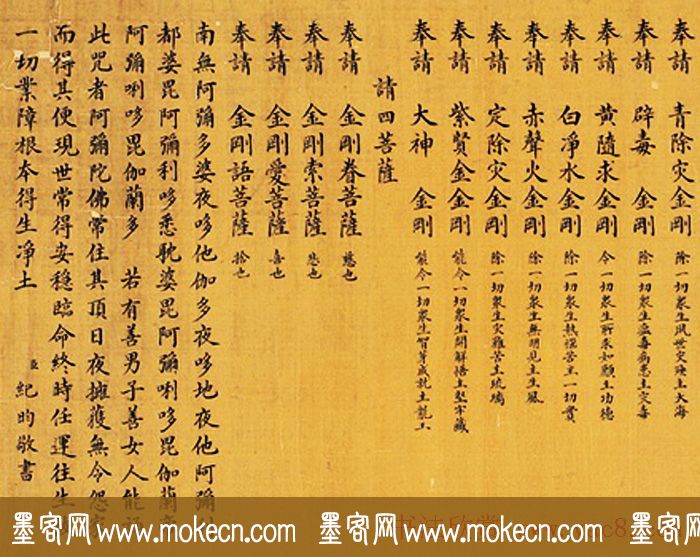 奉請 青除灾金剛 除一切衆生夙世灾殃主大海
奉請 辟毒金剛 除一切衆生瘟毒病患主灾毒
奉請 黄隨求金剛 令一切衆生所求如願主功德
奉請 白淨水金剛 除一切衆生熱惱苦主一切寳
奉請 赤聲火金剛 除一切衆生無明見主生風
奉請 定除灾金剛 除一切衆生灾難苦主琉璃
奉請 紫賢金剛 能令一切衆生開解悟主堅牢藏
奉請 大神金剛 能令一切衆生智芽成就主龍王
請四菩薩
奉請 金剛眷菩薩 慈也
奉請 金剛索菩薩 悲也
奉請 金剛愛菩薩 喜也
奉請 金剛語菩薩 捨也
南無阿彌多婆夜哆他伽多夜哆地夜他阿彌
都婆毘阿彌利哆悉耽婆毘阿彌唎哆毘伽蘭
阿彌唎哆毘伽蘭多 若有善男子善女人能
此咒者阿彌陀佛常住其頂日夜擁護無令怨
而得其便現世常得安穩臨命終時任運往生
一切業障根本得生淨土
臣 紀昀敬書
墨客网 www.mokecn.com 墨客网 www.mokecn.com